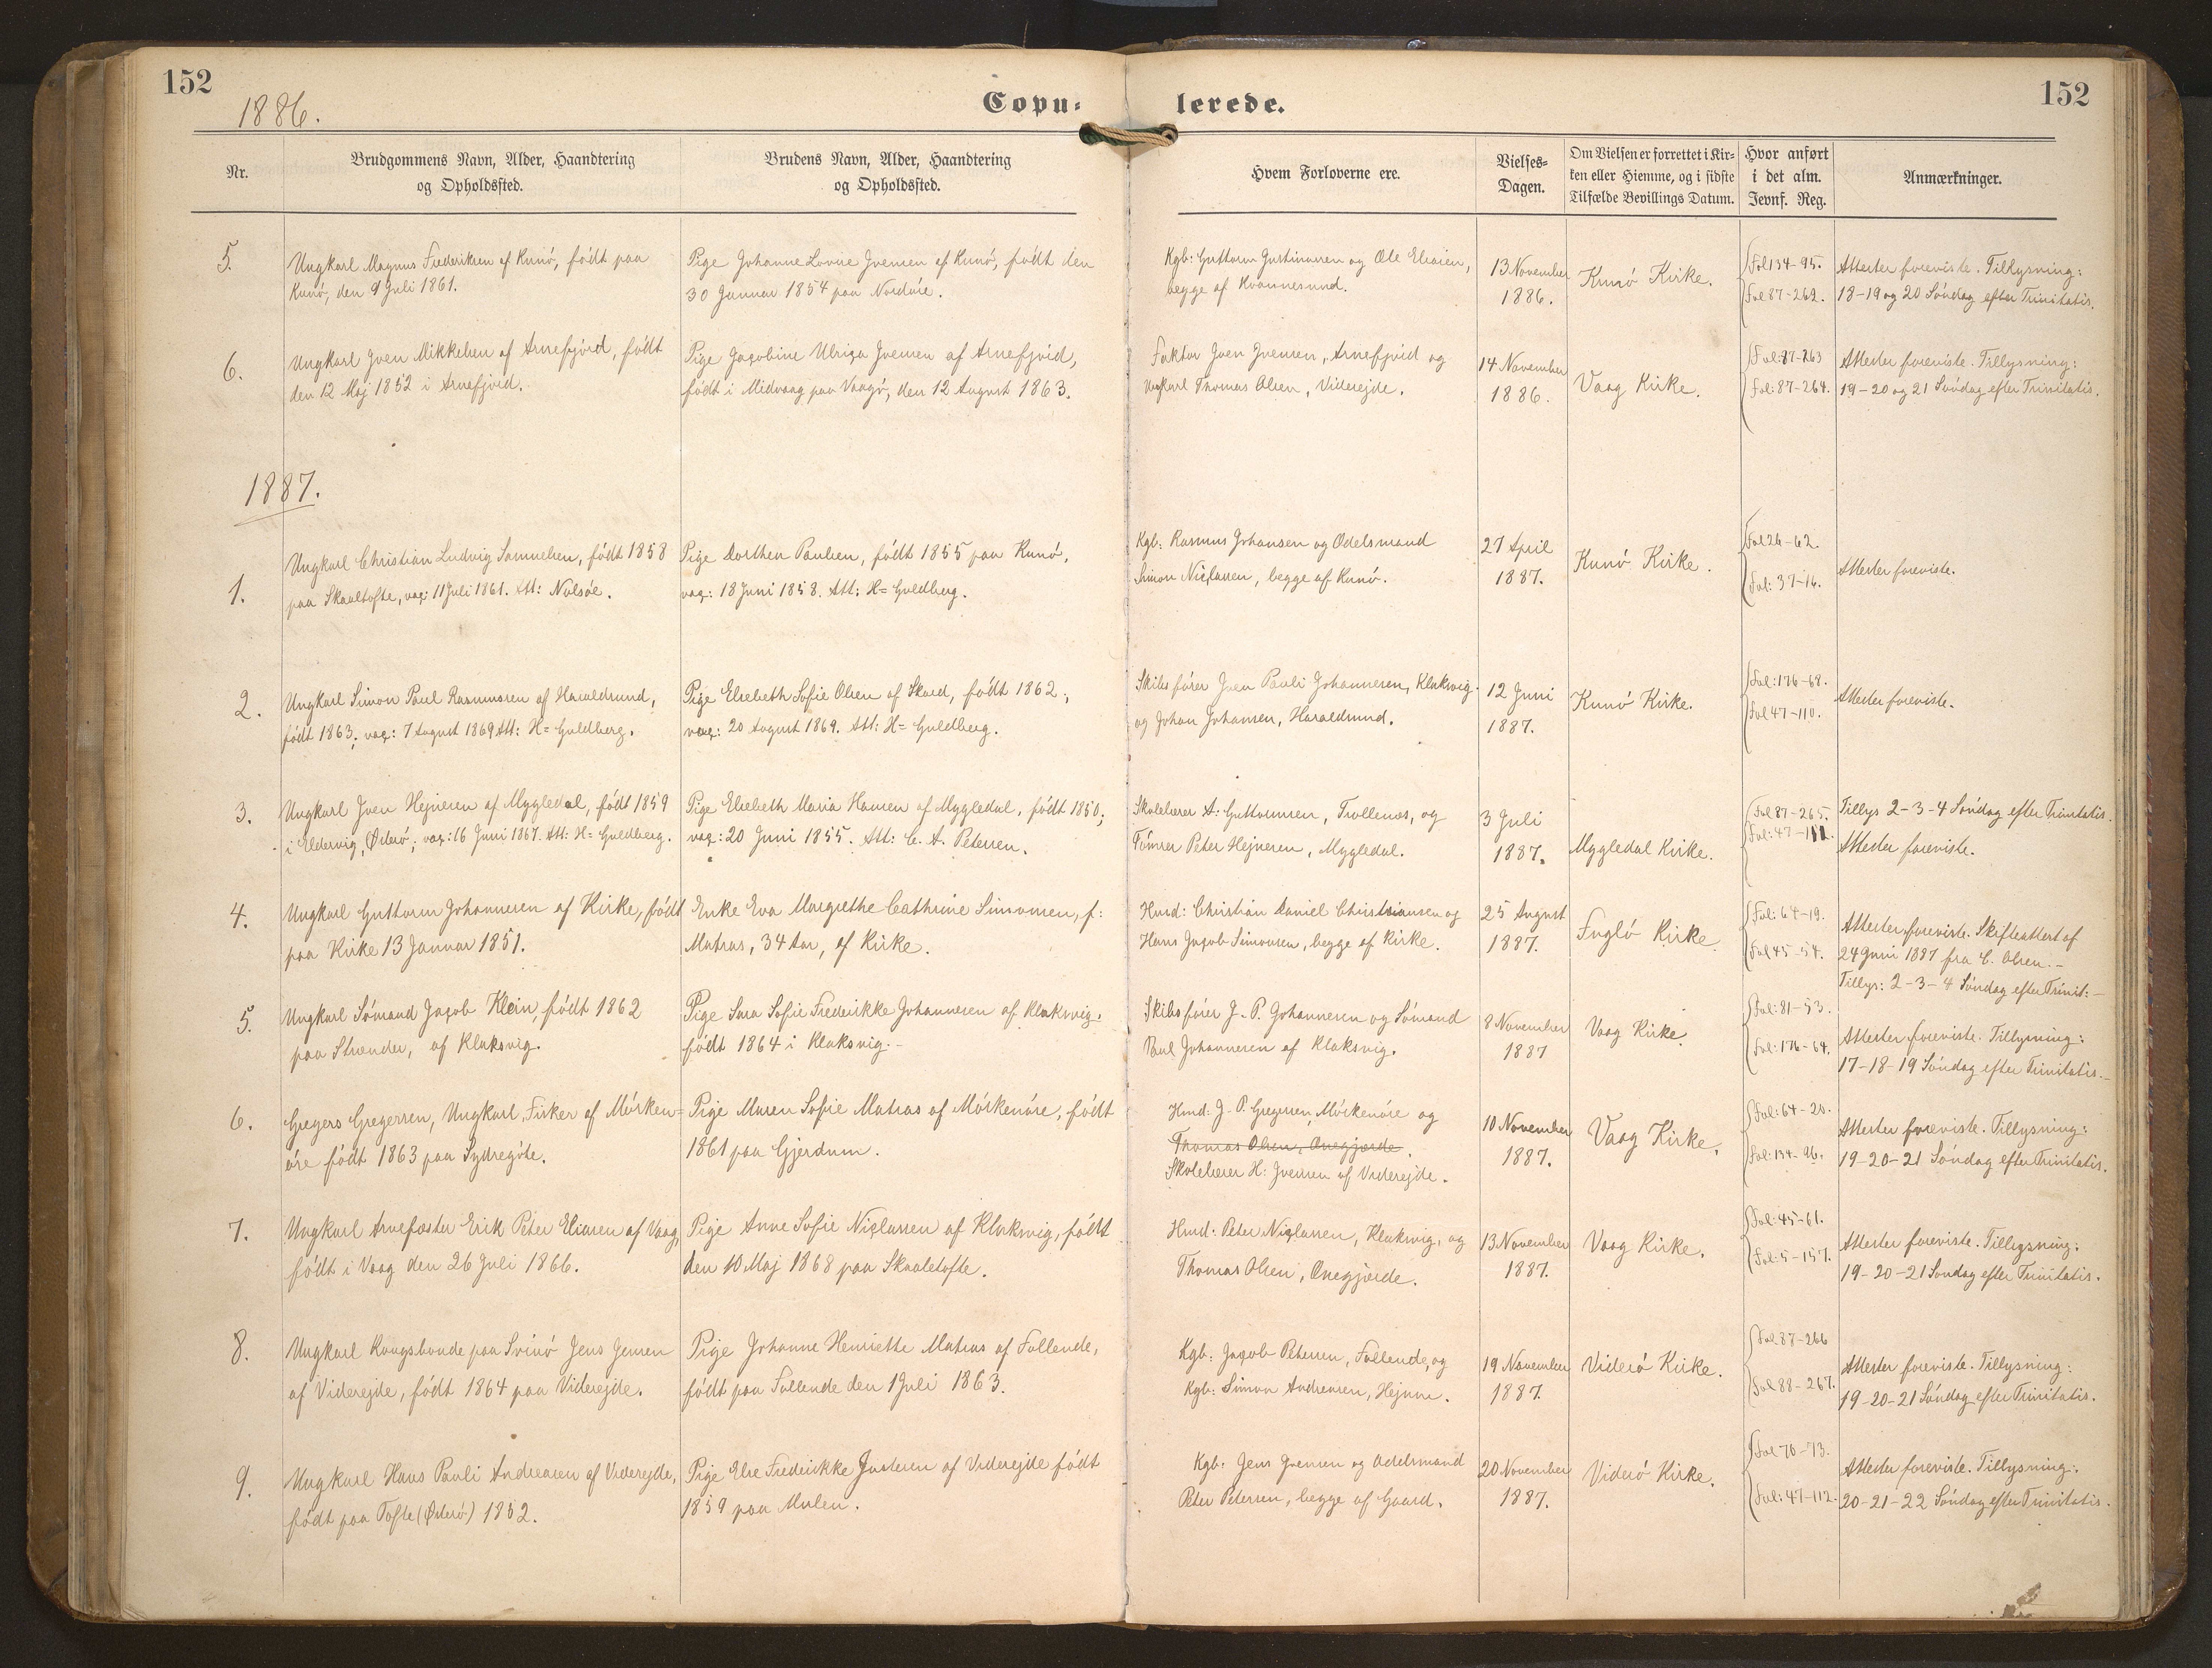 152
152
1886.
Copu-
lerede.
Nr.
Brudgommens Navn, Alder, Haandtering
og Opholdssted.
Brudens Navn, Alder, Haandtering
og Opholdssted.
Hvem Forloverne ere.
Vielses-
Dagen.
Om Vielsen er forrettet i Kir-
ken eller Hiemme, og i sidste
Tilfælde Bevillings Datum.
Hvor anført
i det alm.
Jevnf. Reg.
Anmærkninger.
5.
Ungkarl Magnus Frederiksen af Kunö, födt paa
Kunö, den 9 Juli 1861.
Pige Johanne Lovise Joensen af Kunö, födt den
30 Januar 1854 paa Nordöre.
Kgb: Guttorm Justinussen og Ole Eliasen,
begge af Kvannesund.
13 November
1886.
Kunö Kirke.
Fol 134-95.
Fol 87-262.
Attester foreviste. Tillysning:
18-19 og 20 Söndag efter Trinitatis.
6.
Ungkarl Joen Mikkelsen af Arnefjord, födt
den 12 Maj 1852 i Arnefjord.
Pige Jacobine Ulrica Joensen af Arnefjord,
födt i Midvaag paa Vaagö, den 12 August 1863.
Faktor Joen Joensen, Arnefjord og
Ungkarl Thomas Olsen, Viderejde.
14 November
1886.
Vaag Kirke.
Fol: 87-263
Fol: 87-264.
Attester foreviste. Tillysning:
19-20 og 21 Söndag efter Trinitatis.
1887.
1.
Ungkarl Christian Ludvig Samuelsen, födt 1858
paa Skaaletofte, vac: 11 Juli 1861. Att: Nolsöe.
Pige Dorthea Paulsen, födt 1855 paa Kunö,
vac: 18 Juni 1858. Att: H= Guldberg.
Kgb: Rasmus Johansen og Odelsmand
Simon Niclassen, begge af Kunö.
27 April
1887.
Kunö Kirke.
Fol 26-62.
Fol: 37-16.
Attester foreviste.
2.
Ungkarl Simon Poul Rasmussen af Haraldsund,
födt 1863; vac: 7 August 1869 Att: H= Guldberg.
Pige Elsebeth Sofie Olsen af Skaad, födt 1862;
vac: 20 August 1869. Att: H= Guldberg.
Skibsförer Joen Pauli Johannesen, Klaksvig
og Johan Johansen, Haraldsund.
12 Juni
1887.
Kunö Kirke.
Fol: 176-68.
Fol 47-110.
Attester foreviste.
3.
Ungkarl Joen Hejnesen af Mygledal, födt 1859
i Eldevig, Österö; vac: 16 Juni 1867. Att: H= Guldberg.
Pige Elsebeth Maria Hansen af Mygledal, födt 1850;
vac: 20 Juni 1855. Att: C. A. Petersen.
Skolelærer A: Guttormsen, Trollenæs, og
Tömrer Peter Hejnesen, Mygledal.
3 Juli
1887.
Mygledal Kirke.
Fol 87-265.
Fol: 47-111.
Tillys 2-3-4 Söndag efter Trinitatis.
Attester foreviste.
4.
Ungkarl Guttorm Johannesen af Kirke, födt
paa Kirke 13 Januar 1851.
Enke Eva Margrethe Cathrine Simonsen, f:
Matras, 34 Aar, af Kirke.
Husd: Christian Daniel Christiansen og
Hans Jacob Simonsen, begge af Kirke.
25 August
1887.
Fuglö Kirke
Fol: 64-19.
Fol 45-54.
Attester foreviste. Skifteattest af
24 Juni 1887 fra C. Olsen.-
Tillys: 2-3-4 Söndag efter Trinit:-
5.
Ungkarl Sömand Jacob Klein, födt 1862
paa Strænder, af Klaksvig.
Pige Sara Sofie Frederikke Johannesen af Klaksvig.
födt 1864 i Klaksvig.-
Skibsförer J. P. Johannesen og Sömand
Poul Johannesen af Klaksvig.
8 November
1887
Vaag Kirke.
Fol: 81-53.
Fol: 176-64.
Attester foreviste. Tillysning:
17-18-19 Söndag efter Trinitatis.-
6.
Gregers Gregersen, Ungkarl, Fisker af Mörken=
öre födt 1863 paa Sydregöte.
Pige Maren Sofie Matras af Mörkenöre, födt
1861 paa Gjerdum.
Husd: J. P. Gregersen, Mörkenöre og
Thomas Olsen, Onegjærde.
Skolelærer H: Joensen af Viderejde.
10 November
1887.
Vaag Kirke.
Fol: 64-20.
Fol: 134-96.
Attester foreviste. Tillysning:
19-20-21 Söndag efter Trinitatis.
7.
Ungkarl Arnefæster Erik Peter Eliasen af Vaag,
födt i Vaag den 26 Juli 1866.
Pige Anne Sofie Niclassen af Klaksvig, födt
den 10 Maj 1868 paa Skaaletofte.
Husd: Peter Niclassen, Klaksvig, og
Thomas Olsen, Onegjærde.
13 November
1887.
Vaag Kirke.
Fol: 45-61.
Fol: 5-157.
Attester foreviste. Tillysning:
19-20-21 Söndag efter Trinitatis.
8.
Ungkarl Kongsbonde paa Svinö Jens Jensen
af Viderejde, födt 1864 paa Viderejde.
Pige Johanne Henriette Matras af Follende,
födt paa Follende den 1 Juli 1863.
Kgb: Jacob Petersen, Follende, og
Kgb: Simon Andreasen, Hejnum.
19 November
1887.
Viderö Kirke.
Fol 87-266
Fol 88-267.
Attester foreviste. Tillysning:
19-20-21 Söndag efter Trinitatis.
9.
Ungkarl Hans Pauli Andreasen af Viderejde,
födt paa Tofte (Österö) 1852.
Pige Else Frederikke Justesen af Viderejde födt
1859 paa Mulen.
Kgb: Jens Joensen og Odelsmand
Peter Petersen, begge af Gaard.
20 November
1887.
Viderö Kirke.
Fol 70-73.
Fol: 47-112.
Attester foreviste. Tillysning:
20-21-22 Söndag efter Trinitatis.